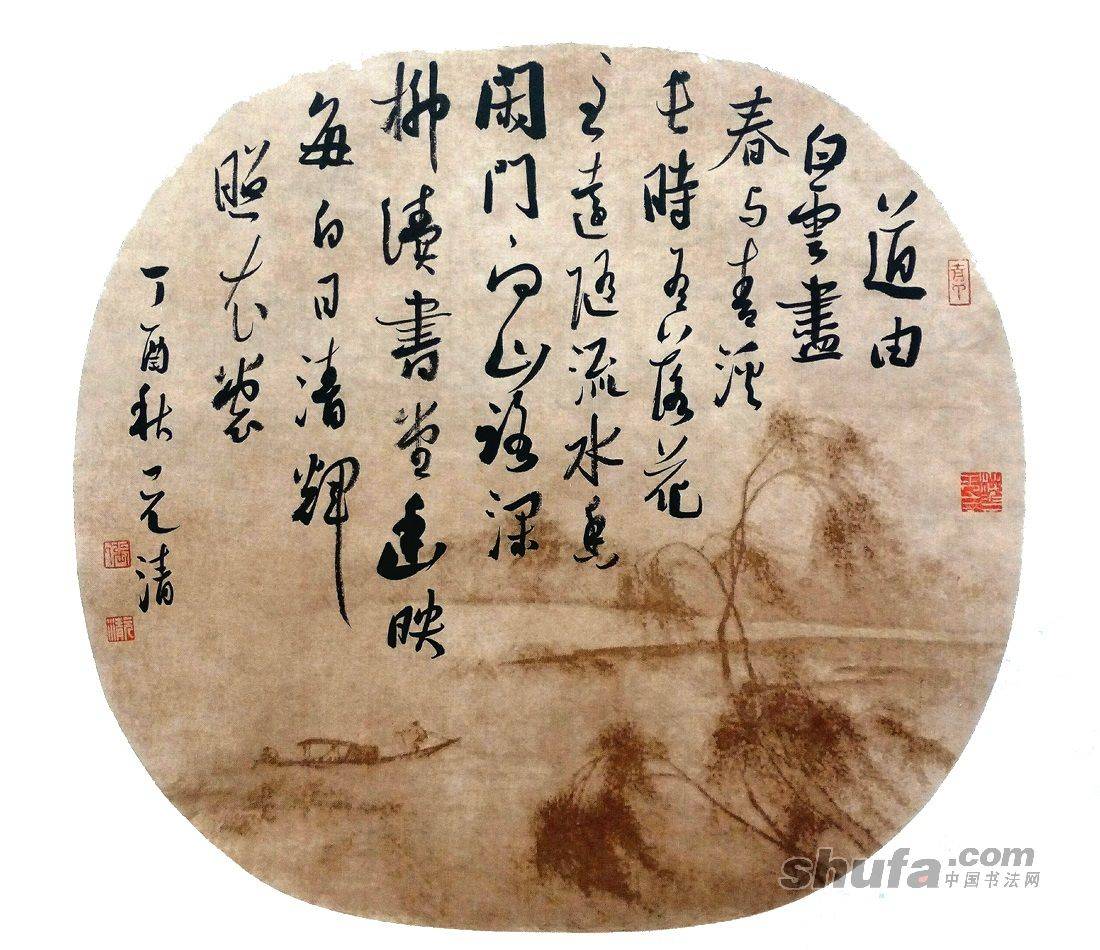 道由
白雲盡
春与青溪
長時有落花
至遠随流水香
閑門向山路深
柳讀書堂幽映
每白日清輝
照衣裳
丁酉秋元清
張
元清
shufa.com
中国书法网